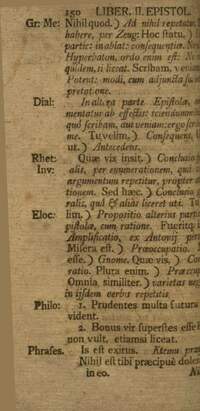 150 LIBER. II. EPISTOL.
Gr: Me: Nihil quod. ) Ad nihil repetatur
habere, per Zeug: Hoc statu. )
partic: in ablat: consequentiæ. Ne
Hyperbaton, ordo enim est: Ne
quidem, si liceat. Scribam,
Potent: modi, cum adjuncta
pretatione.
Dial: In altera parte Epistolæ,
mentatur ab effectis: sciendum
quid scribam, aut veniam: ergo scri
me. Tu velim. ) Consequens,
ut. ) Antecedens.
Rhet: Quæ vix insit. ) Conclusio
Inv: alit, per enumerationem, qua
argumentum repetitur, propter
tionem. Sed hæc. ) Conclusio
ralis, quâ & alias liceret uti. Tu
Eloc: lim. ) Propositio alterius part
pistolæ, cum ratione. Fuerítq
Amplificatio, ex Antonj per
Misera est. ) Præoccupatio.
esse. ) Gnome. Quæ vis. ) Co
ratio. Plura enim. ) Præoccup
Omnia, similiter. ) varietas
in iisdem verbis repetitis
Philo: 1. Prudentes multa futura
vident.
2. Bonus vir superstes esse
non vult, etiamsi liceat.
Phrases. Is est exitus.
Nihil est tibi præcipuè dolen
in eo.